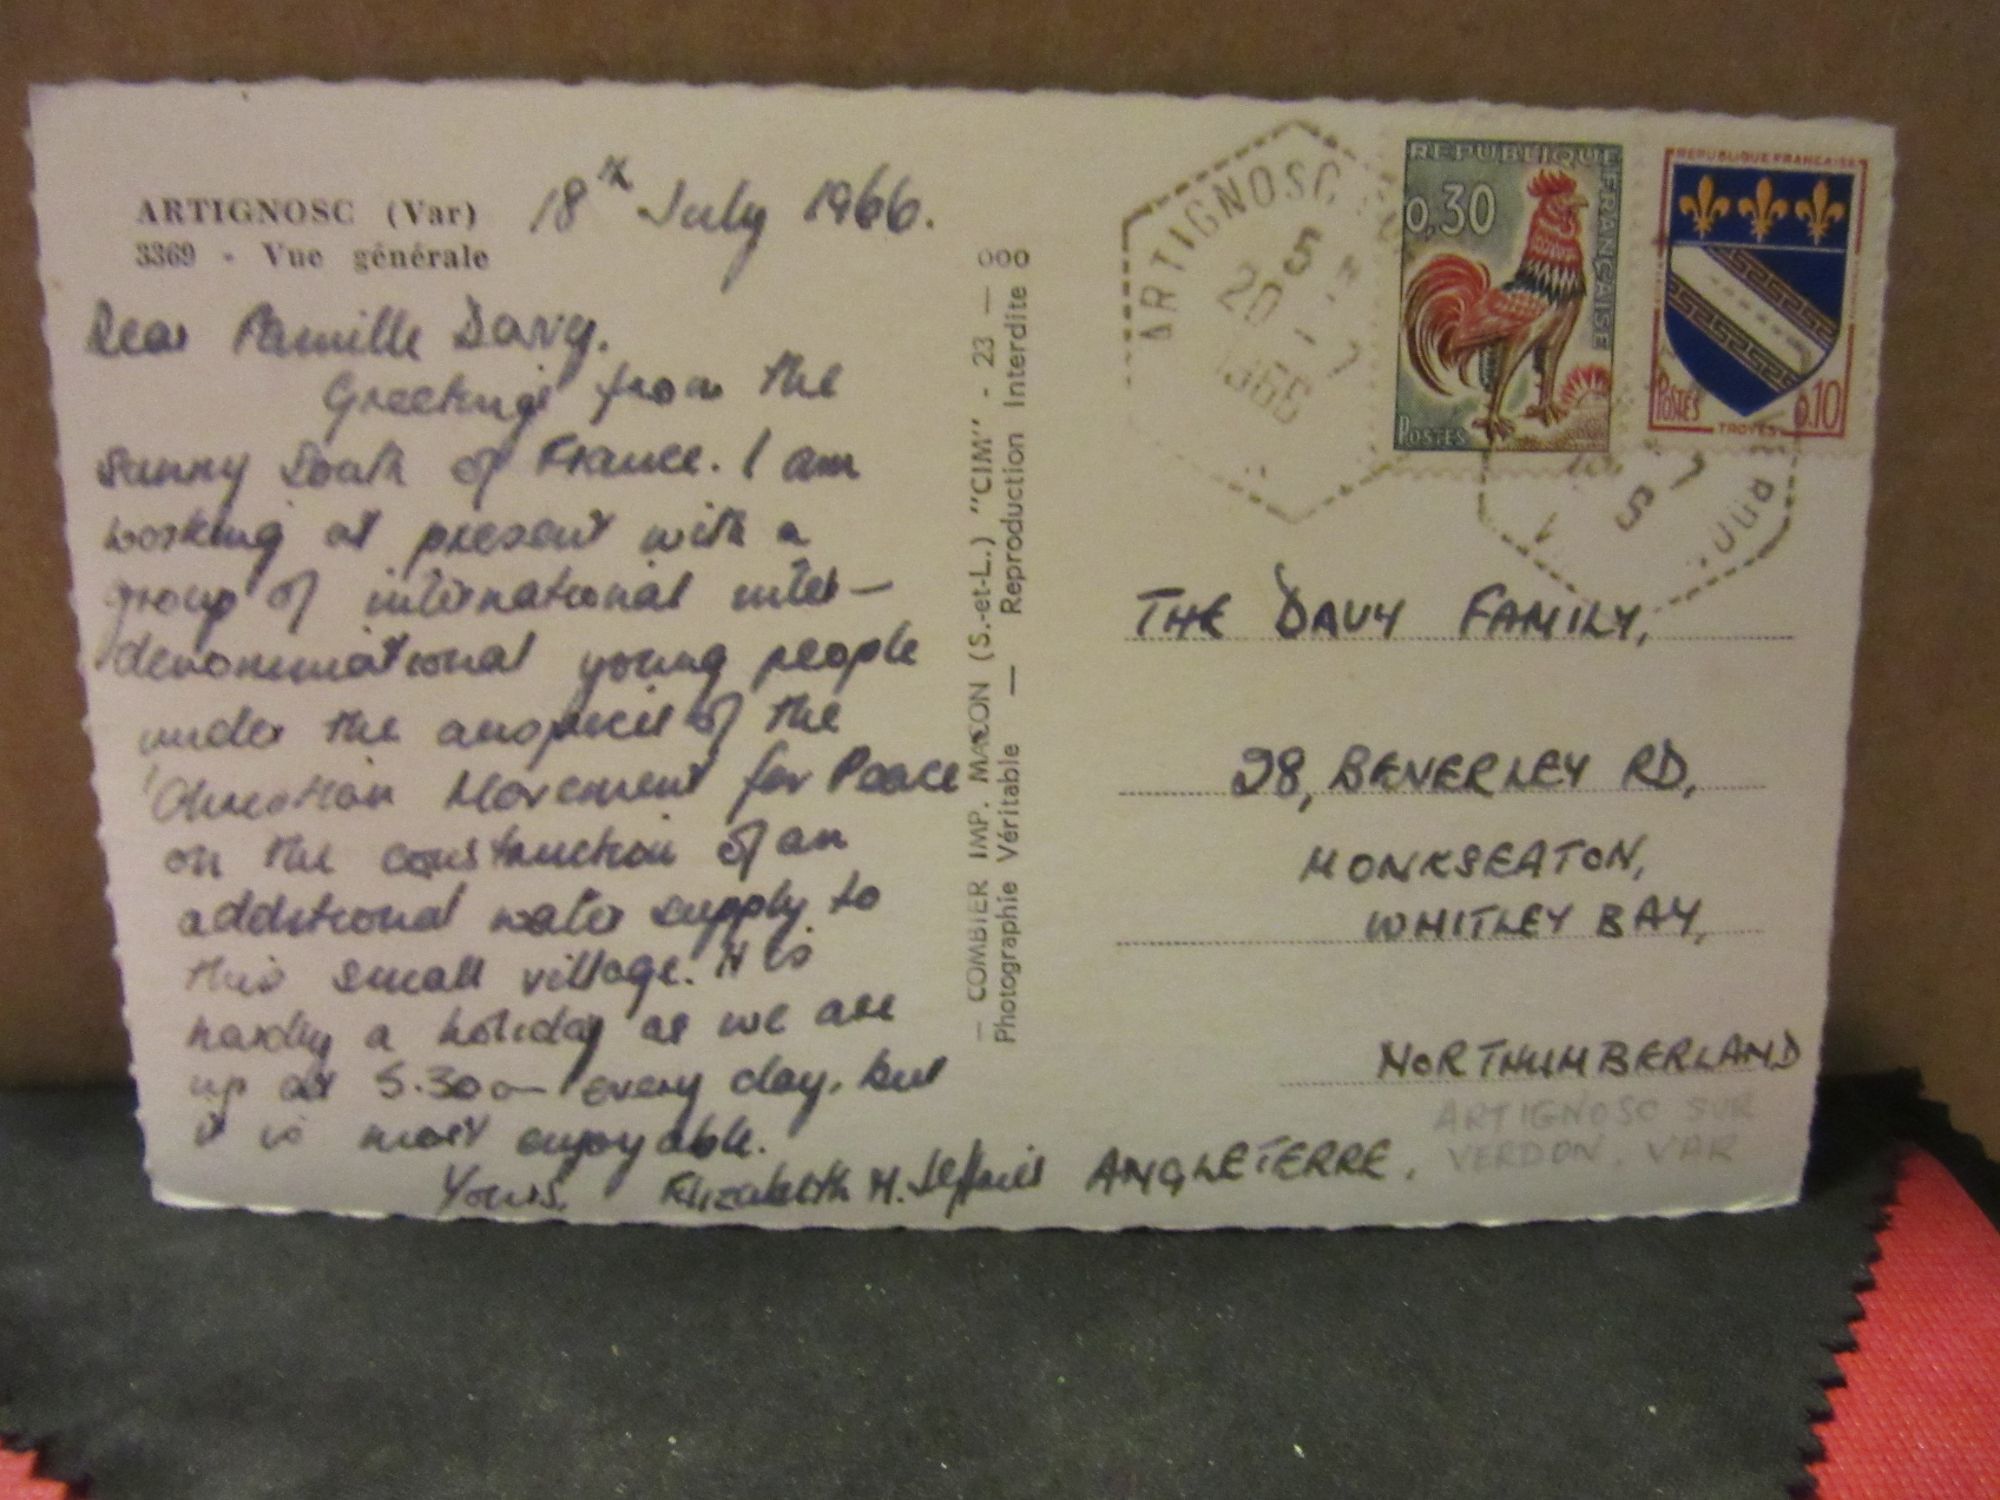 ARTIGNOSC (Var)
3369 - Vue générale
18th July 1966.
Dear Famille Davy.
Greetings from the
sunny South of France. I am
working at present with a
group of international inter-
denominational young people
under the auspices of the
'Christian Movement for Peace
on the construction of an
additional water supply to
this small village. It is
hardly a holiday as we are
up at 5.30 every day, but
it is most enjoyable.
Yours. Elizabeth M.
000
— COMBIER IMP. MACON (S.-et-L.) "CIM" - 23 —
Photographie Véritable — Reproduction Interdite
ARTIGNOSC
5
20 - 7
1966
REPUBLIQUE FRANÇAISE
0,30
POSTES
REPUBLIQUE FRANÇAISE
POSTES
0,10
TROYES
THE DAVY FAMILY,
28, BEVERLEY RD,
MONKSEATON,
WHITLEY BAY,
NORTHUMBERLAND
ANGLETERRE.
ARTIGNOSC SUR
VERDON. VAR